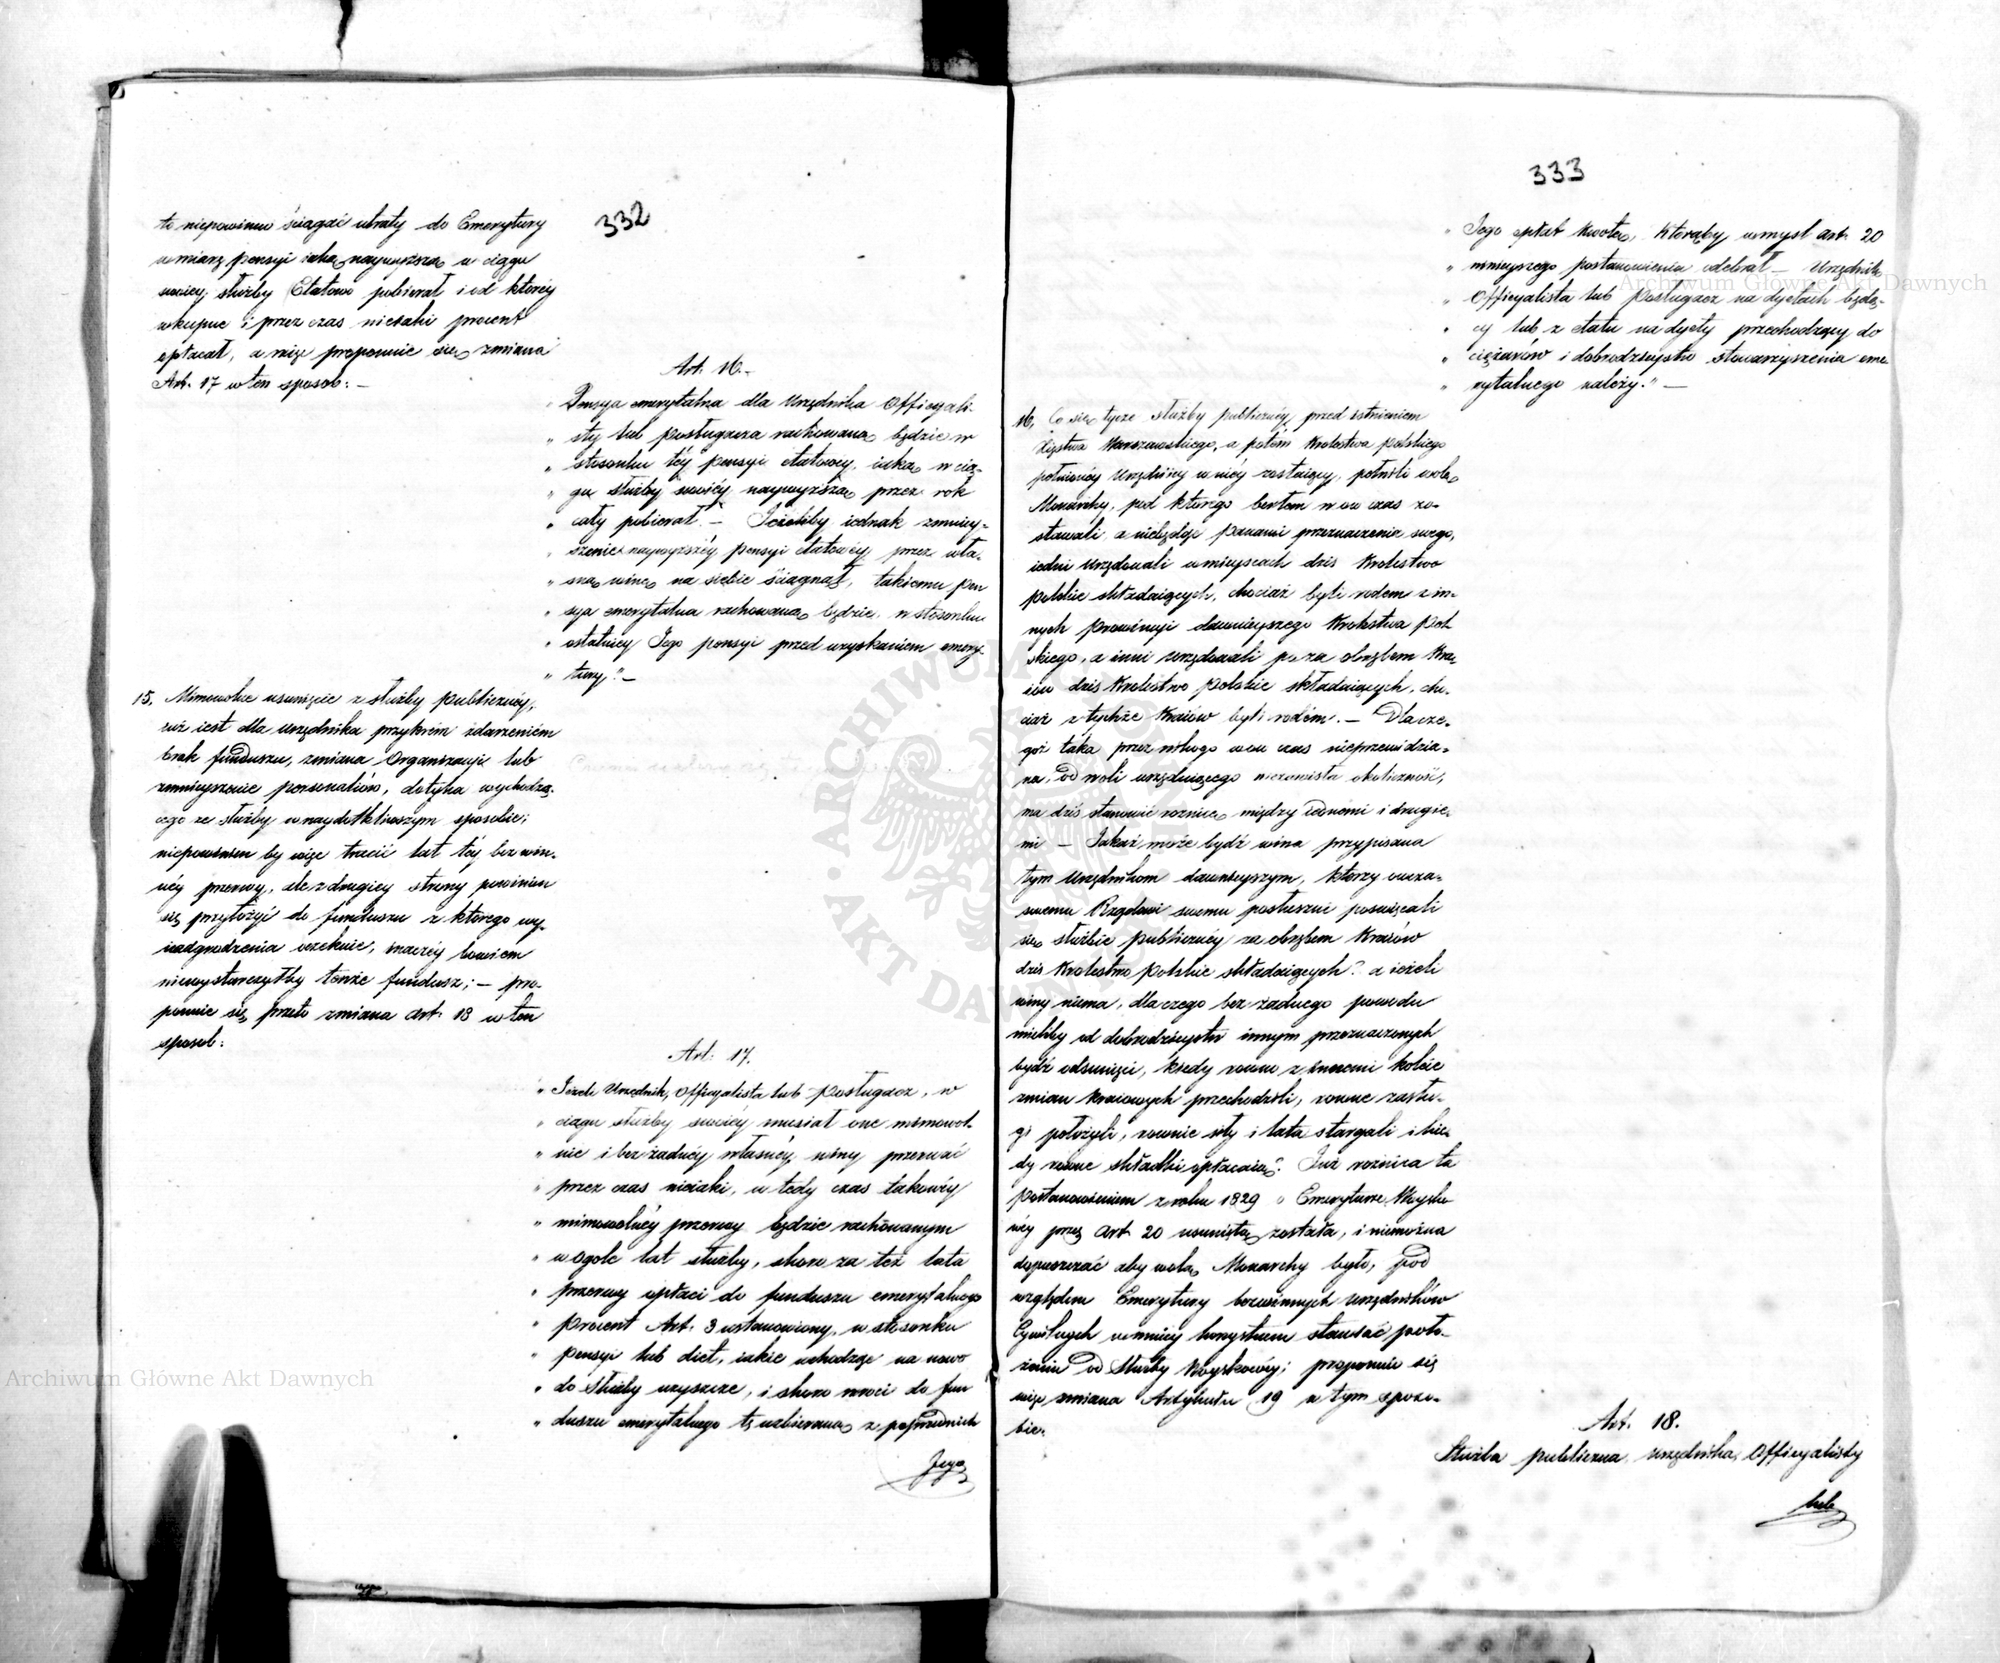 332
to niepowinno ściągać utraty do Emerytury
w miarę pensyi jaką naywyższą w ciągu
swoiey służby Etatowo pobierał i od któréy
wkupne i przez czas niejaki procent
opłacał, a więc proponuie się zmiana
Art. 17 w ten sposob: —
Art. 16. —
„ Pensya emerytalna dla Urzędnika Officyali-
„ sty lub posługacza rachowaną będzie w
„ stosunku téy pensyi etatowey, iaką w cią-
„ gu służby swoiéy naywyższą przez rok
„ cały pobierał. — Jeżeliby iednak zmniey-
„ szenie naywyższéy pensyi etatowéy przez wła-
„ sną winę na siebie ściągnął, takiemu pen
„ sya emerytalna rachowaną będzie w stosunku
„ ostatniey Jego pensyi przed uzyskaniem emery-
„ tury." —
15. Mimowolne usunięcie z służby publicznéy,
iuż iest dla urzędnika przykrém zdarzeniem
brak funduszu, zmiana Organizacyi lub
zmnieyszenie personaliów, dotyka wychodzą-
cego ze służby w naydotkliwszym sposobie;
niepowinien by więc tracić lat téy bez win-
néy przerwy, ale z drugiey strony powinien
się przyłożyć do funduszu z którego wy-
nadgrodzenia oczekuie, inaczéy bowiem
niewystarczyłby tenże fundusz; — pro-
ponuie się przeto zmiana art. 18 w ten
sposob:
Art. 17.
„ Jeżeli Urzędnik, Officyalista lub posługacz, w
„ ciągu służby swoiéy musiał one mimowol-
„ nie i bez żadnéy własnéy winy przerwać
„ przez czas nieiaki, w tedy czas takowéy
„ mimowolnéy przerwy będzie rachowanym
„ w ogole lat służby, skoro za też lata
„ przerwy opłaci do funduszu emerytalnego
„ procent Art. 3 ustanowiony, w stosunku
„ pensyi lub diet, iakie wchodząc na nowo
„ do służby uzyszcze, i skoro wroci do fun
„ duszu emerytalnego tę uzbieraną z poprzednich
Jego
333
„ Jego opłat kwotę, którąby w myśl art. 20
„ ninieyszego postanowienia odebrał — Urzędnik
„ Officyalista lub posługacz na dyetach będą-
„ cy lub z etatu na dyety przechodzący do
„ ciężarów i dobrodzieystw stowarzyszenia eme
„ rytalnego należy." —
16. Co się tycze służby publicznéy przed istnieniem
Xięstwa Warszawskiego, a potém Krolestwa polskiego
pełnionéy Urzędnicy w niéy zostaiący, pełnili wolę
Monarchy, pod którego berłem w ow czas zo-
stawali, a niebędąc panami przeznaczenia swego,
iedni urzędowali w mieyscach dziś Krolestwo
polskie składaiących, chociaż byli rodem z in-
nych prowincyi dawnieyszego Krolestwa pol
skiego, a inni urzędowali po za obrębem kra-
iów dziś Krolestwo polskie składaiących, cho-
ciaż z tychże kraiów byli rodém. — Dlacze-
goż taka przez nikogo w ow czas nieprzewidzia-
na, od woli urzędniczego niezawisła okoliczność,
ma dziś stanowić roznicę między iednemi i drugie-
mi — Jakaż może bydź wina przypisana
tym Urzędnikom dawnieyszym, którzy owcza-
sowemu Rządowi swemu posłusznie poświęcali
się służbie publicznéy za obrębem kraiów
dziś Krolestwo polskie składaiących? a ieżeli
winy niema, dla czego bez żadnego powodu
mieliby od dobrodzieystw innym przeznaczonych
bydź odsunięci, kiedy rowno z innemi koleie
zmian kraiowych przechodzili, rowne zasłu-
gi położyli, rownie siły i lata stargali i kie-
dy rowne składki opłacaią? Już roznica ta
postanowieniem z roku 1829 o Emeryturze Woysko
wéy przez art. 20 usuniętą została, i niemożna
dopuszczać aby wolą Monarchy było, pod
względem Emerytury bezwinnych Urzędników
Cywilnych w mniéy korzystném stawiać poło-
żeniu od Służby Woyskowéy; proponuie się
więc zmiana Artykułu 19 w tym sposo-
bie.
Art. 18.
Służba publiczna urzędnika, Officyalisty
lub
Archiwum Główne Akt Dawnych
Archiwum Główne Akt Dawnych
ARCHIWUM GŁÓWNE AKT DAWNYCH